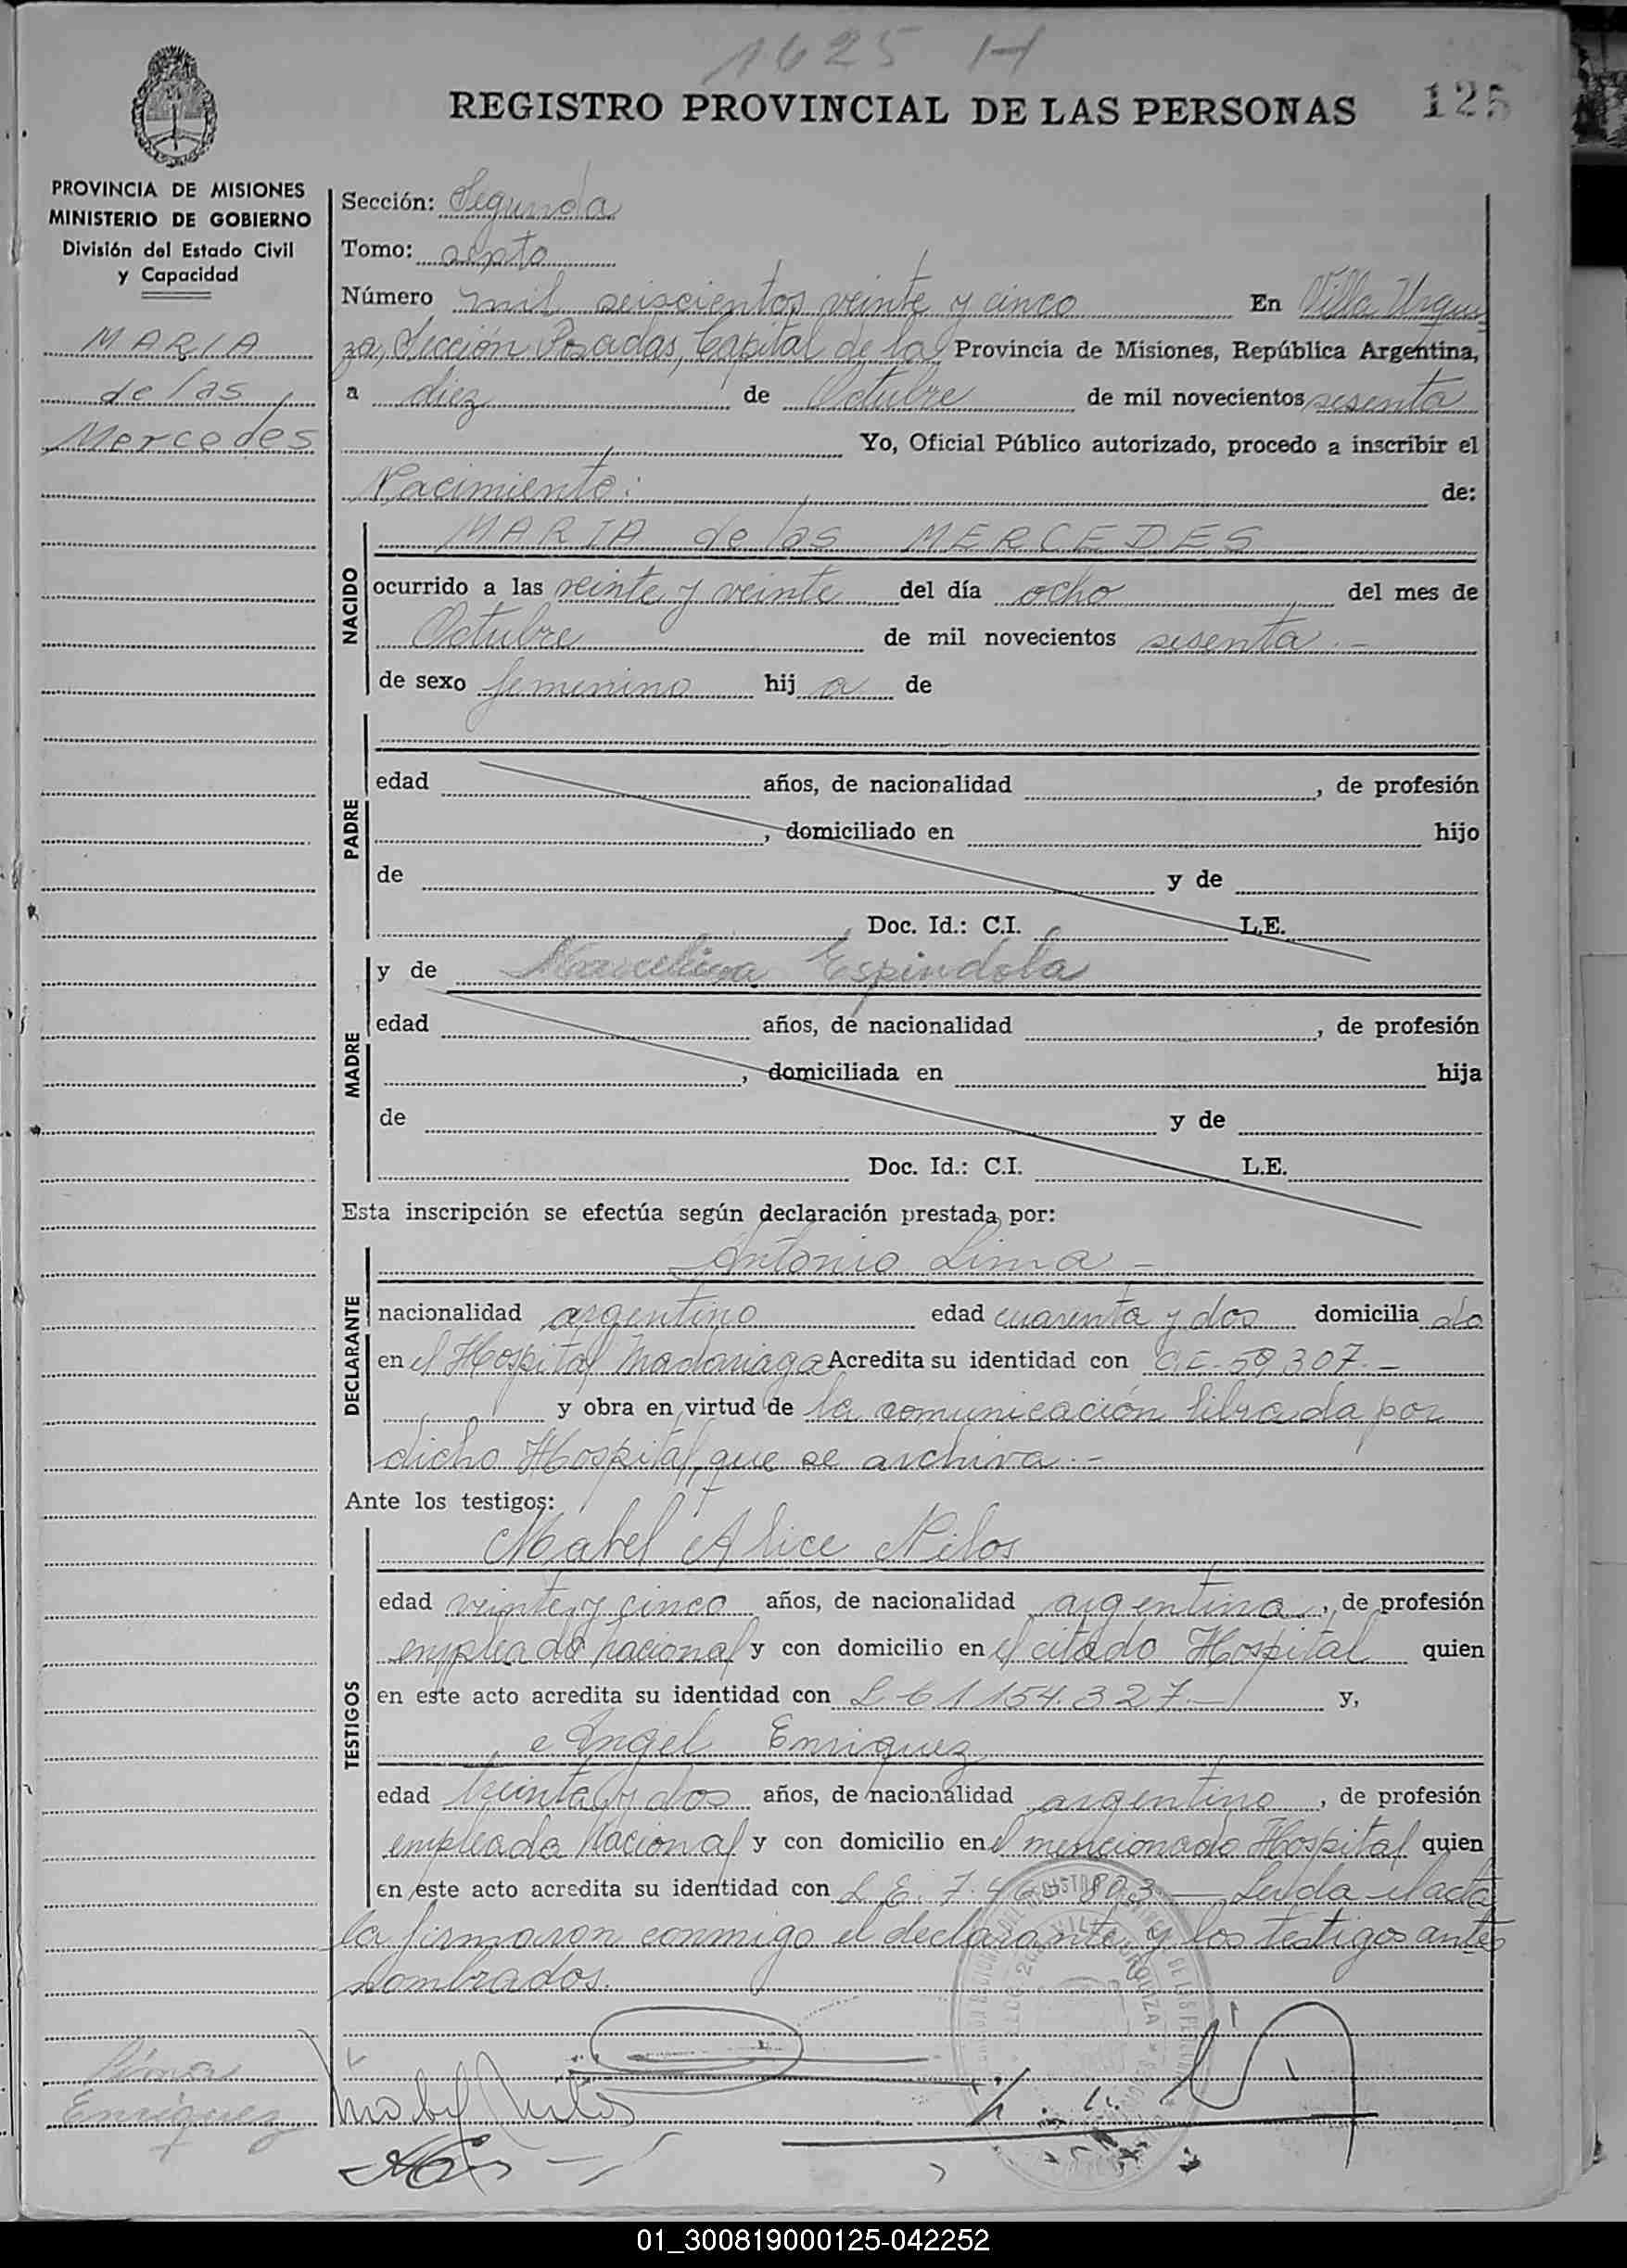 1625 H
REGISTRO PROVINCIAL DE LAS PERSONAS 125
PROVINCIA DE MISIONES
MINISTERIO DE GOBIERNO
División del Estado Civil
y Capacidad
MARIA
de las
Mercedes
Sección: Segunda
Tomo: septo
Número mil seiscientos veinte y cinco En Villa Urqui
za, Sección Posadas, Capital de la Provincia de Misiones, República Argentina,
a diez de Octubre de mil novecientos sesenta
Yo, Oficial Público autorizado, procedo a inscribir el
Nacimiento: de:
NACIDO
MARIA de las MERCEDES
ocurrido a las veinte y veinte del día ocho del mes de
Octubre de mil novecientos sesenta.-
de sexo femenino hij a de
PADRE
edad años, de nacionalidad , de profesión
, domiciliado en hijo
de y de
Doc. Id.: C.I. L.E.
MADRE
y de Marcelina Espindola
edad años, de nacionalidad , de profesión
, domiciliada en hija
de y de
Doc. Id.: C.I. L.E.
Esta inscripción se efectúa según declaración prestada por:
DECLARANTE
Antonio Lima -
nacionalidad argentino edad cuarenta y dos domicilia do
en el Hospital Madariaga Acredita su identidad con 59.307.-
y obra en virtud de la comunicación librada por
dicho Hospital, que se archiva.-
Ante los testigos:
TESTIGOS
Mabel Alice Nilos
edad veinte y cinco años, de nacionalidad argentina, de profesión
empleado nacional y con domicilio en el citado Hospital quien
en este acto acredita su identidad con 1154.327.- y,
e Angel Enriquez
edad treinta y dos años, de nacionalidad argentino, de profesión
empleada Nacional y con domicilio en el mencionado Hospital quien
en este acto acredita su identidad con L.E. Leida el acta
la firmaron conmigo el declarante y los testigos antes
nombrados.
Lima
Enriquez
Mabel Nilos
01_300819000125-042252